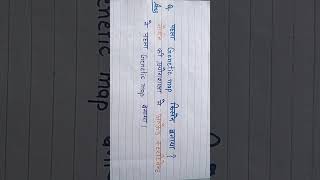 Q. पहला Genetic map किसने बनाया ?
Ans मॉर्गन की प्रयोगशाला में अल्फ्रेड स्टर्टवेन्ट
ने पहला Genetic map बनाया ।